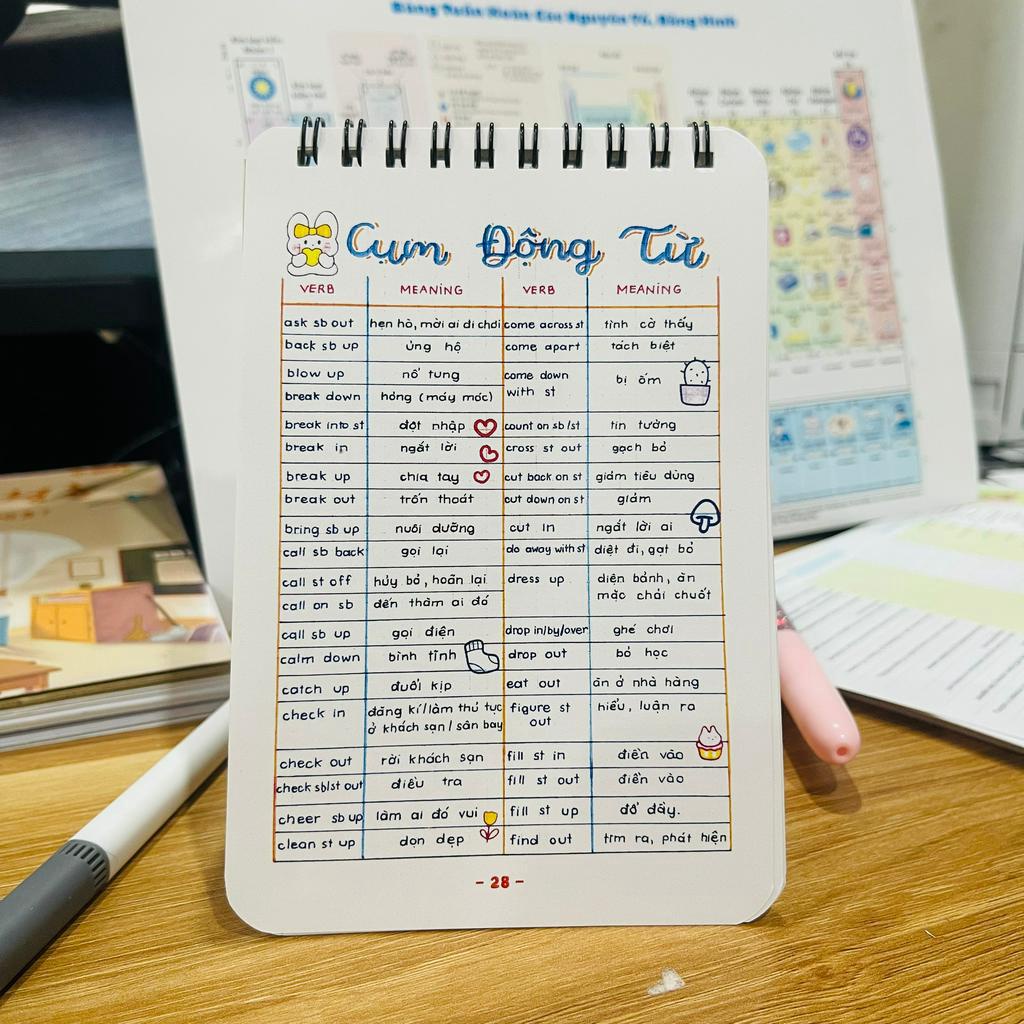 Bảng Tuần Hoàn Các Nguyên Tố, Bằng Hình
Cụm Động Từ
VERB MEANING VERB MEANING
ask sb out hẹn hò, mời ai đi chơi come across st tình cờ thấy
back sb up ủng hộ come apart tách biệt
blow up nổ tung come down with st bị ốm
break down hỏng (máy móc)
break into st đột nhập count on sb/st tin tưởng
break in ngắt lời cross st out gạch bỏ
break up chia tay cut back on st giảm tiêu dùng
break out trốn thoát cut down on st giảm
bring sb up nuôi dưỡng cut in ngắt lời ai
call sb back gọi lại do away with st diệt đi, gạt bỏ
call st off hủy bỏ, hoãn lại dress up diện bảnh, ăn
call on sb đến thăm ai đó mặc chải chuốt
call sb up gọi điện drop in/by/over ghé chơi
calm down bình tĩnh drop out bỏ học
catch up đuổi kịp eat out ăn ở nhà hàng
check in đăng kí/làm thủ tục figure st hiểu, luận ra
ở khách sạn/sân bay out
check out rời khách sạn fill st in điền vào
check sb/st out điều tra fill st out điền vào
cheer sb up làm ai đó vui fill st up đổ đầy.
clean st up dọn dẹp find out tìm ra, phát hiện
- 28 -